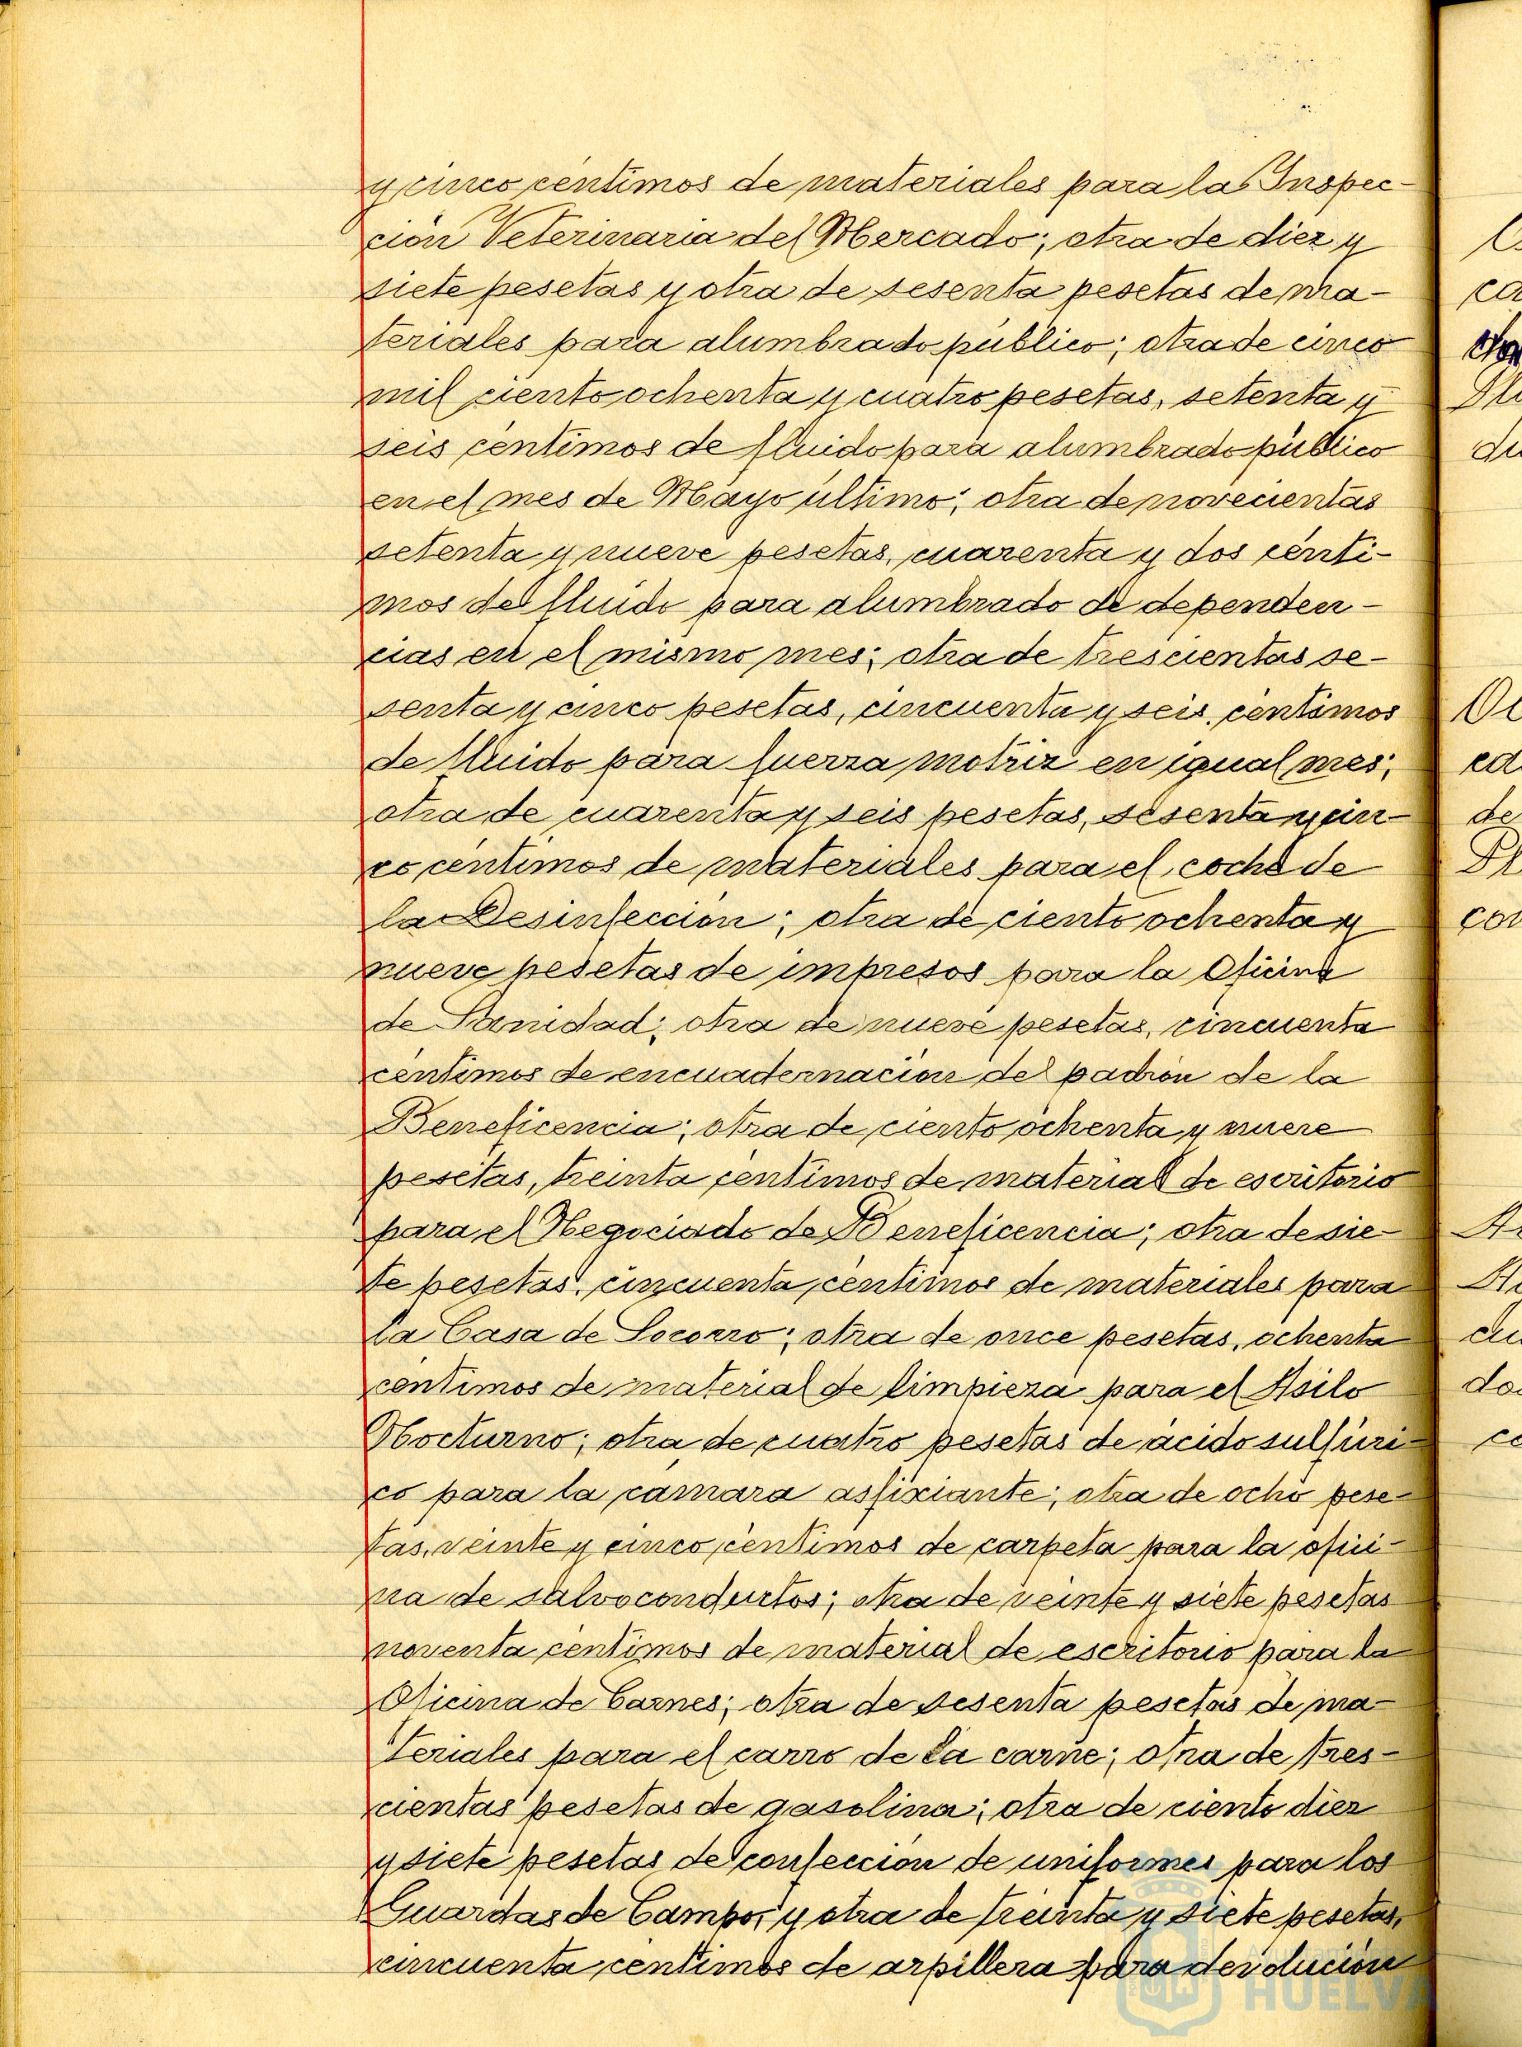 y cinco céntimos de materiales para la Inspec-
ción Veterinaria del Mercado; otra de diez y
siete pesetas y otra de sesenta pesetas de ma-
teriales para alumbrado público; otra de cinco
mil ciento ochenta y cuatro pesetas, setenta y
seis céntimos de fluido para alumbrado público
en el mes de Mayo último; otra de novecientas
setenta y nueve pesetas, cuarenta y dos cénti-
mos de fluido para alumbrado de dependen-
cias en el mismo mes; otra de trescientas se-
senta y cinco pesetas, cincuenta y seis céntimos
de fluido para fuerza motriz en igual mes;
otra de cuarenta y seis pesetas, sesenta y cin-
co céntimos de materiales para el coche de
la Desinfección; otra de ciento ochenta y
nueve pesetas de impresos para la Oficina
de Sanidad; otra de nueve pesetas, cincuenta
céntimos de encuadernación del padrón de la
Beneficencia; otra de ciento ochenta y nueve
pesetas, treinta céntimos de material de escritorio
para el Negociado de Beneficencia; otra de sie-
te pesetas, cincuenta céntimos de materiales para
la Casa de Socorro; otra de once pesetas, ochenta
céntimos de material de limpieza para el Asilo
Nocturno; otra de cuatro pesetas de ácido sulfúri-
co para la cámara asfixiante; otra de ocho pese-
tas, veinte y cinco céntimos de carpeta para la ofici-
na de salvoconductos; otra de veinte y siete pesetas
noventa céntimos de material de escritorio para la
Oficina de Carnes; otra de sesenta pesetas de ma-
teriales para el carro de la carne; otra de tres-
cientas pesetas de gasolina; otra de ciento diez
y siete pesetas de confección de uniformes para los
Guardas de Campo, y otra de treinta y siete pesetas,
cincuenta céntimos de arpillera para devolución
HUELVA